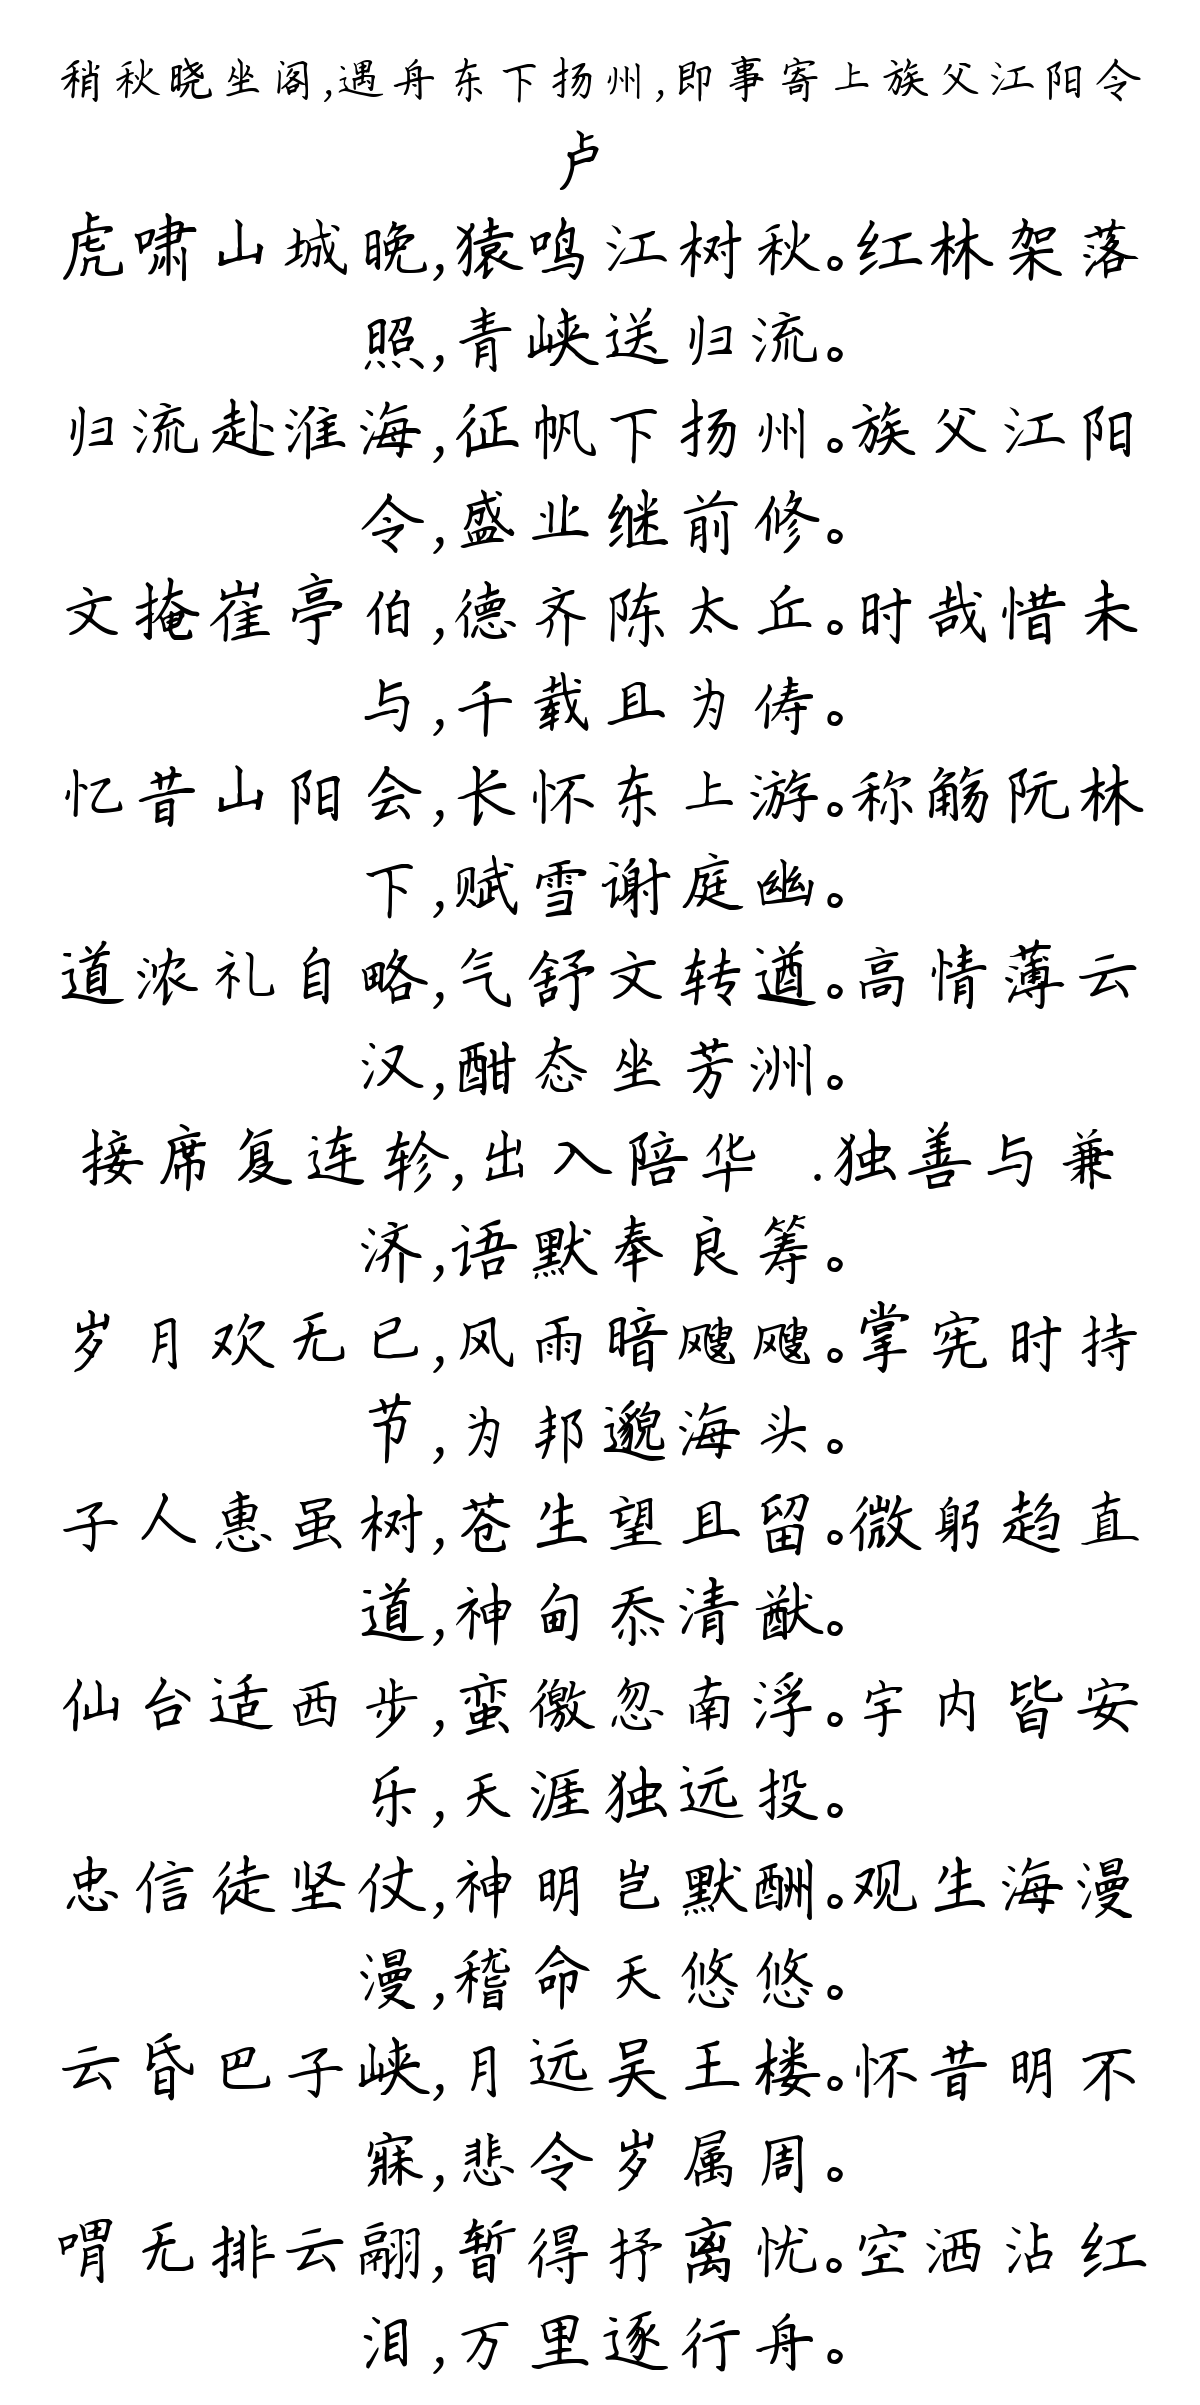 稍秋晓坐阁,遇舟东下扬州,即事寄上族父江阳令
卢
虎啸山城晚,猿鸣江树秋。红林架落
照,青峡送归流。
归流赴淮海,征帆下扬州。族父江阳
令,盛业继前修。
文掩崔亭伯,德齐陈太丘。时哉惜未
与,千载且为俦。
忆昔山阳会,长怀东上游。称觞阮林
下,赋雪谢庭幽。
道浓礼自略,气舒文转遒。高情薄云
汉,酣态坐芳洲。
接席复连轸,出入陪华 .独善与兼
济,语默奉良筹。
岁月欢无已,风雨暗飕飕。掌宪时持
节,为邦邈海头。
子人惠虽树,苍生望且留。微躬趋直
道,神甸忝清猷。
仙台适西步,蛮徼忽南浮。宇内皆安
乐,天涯独远投。
忠信徒坚仗,神明岂默酬。观生海漫
漫,稽命天悠悠。
云昏巴子峡,月远吴王楼。怀昔明不
寐,悲令岁属周。
喟无排云翮,暂得抒离忧。空洒沾红
泪,万里逐行舟。